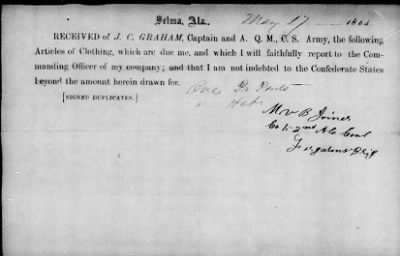 Selma, Ala. May 17 1864
RECEIVED of J. C. GRAHAM, Captain and A. Q. M., C. S. Army, the following
Articles of Clothing, which are due me, and which I will faithfully report to the Com-
manding Officer of my company; and that I am not indebted to the Confederate States
beyond the amount herein drawn for.
One Pr Pants
[SIGNED DUPLICATES.] " Hat
M V B Joiner
Co 2nd Ala Cavl
Fergusons Brig